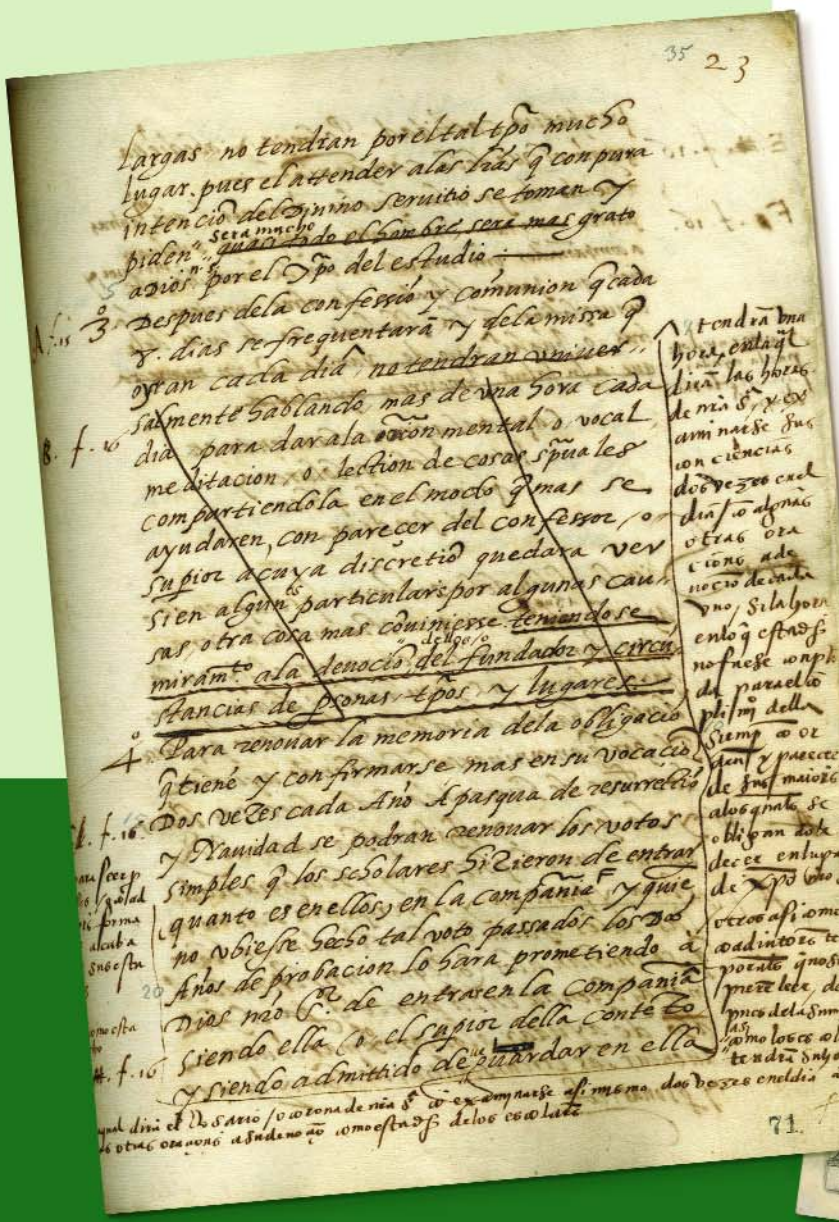 35 23
largas no tendran por el tal tpõ mucho
lugar. pues el attender a las lr̃as q̃ con pura
intenciõ del Divino servitio se toman y
piden quasi todo el hombre, sera mas grato
sera mucho
a Dios nr̃o por el tpõ del estudio
A f. 15
3º Despues dela confessiõ y comunion q̃ cada
8. dias se frequentarã y dela missa q̃
oyran cada dia ^ no tendran univer,,
salmente hablando, mas de una hora cada
B. f. 16
dia para dar a la or̃on mental o vocal
meditacion, o lection de cosas sp̃uales
compartiendola en el modo q̃ mas se
ayudaren, con parecer del confessor, o
supior a cuya discretiõ quedara ver
si en algun particular por algunas cau,,
sas, otra cosa mas cõviniesse teniendose
miramto. a la devociõ del fundador y circũ,
stancias de psonas tpõs y lugares.
4º Para renovar la memoria dela obligaciõ
q̃ tienẽ y confirmarse mas en su vocaciõ
f. 16.
Dos vezes cada Año A pasqua de resurrectiõ
y Navidad se podran renovar los votos
simples q̃ los scholares hizieron de entrar
quanto es en ellos, en la compañia F y quiẽ
no ubiesse hecho tal voto passados los Dos
Años de probacion lo hara prometiendo à
20
Dios nr̃o sor. de entrar en la compañia
siendo ella (o el supior della contẽto
H. f. 16
y siendo admittido de guardar en ella
^ tendrã una
hora, en la q̃l
dirã las horas
de nr̃a sra y ex
aminarse sus
conciencias
dos vezes en el
dia cõ algunas
otras ora
ciones a de
vociõ de cada
uno, si la hora
no fuese cumpli
da para el cõ
della
siemp cõ or
den y parecer
de sus maiores
a los quales se
obligan
decer en lugar
de xpõ nr̃o
como los
tendrã
forma
acaba
como esta
qual dirã el Rosario / o corona de nr̃a sra cõ examinarse asi mismo dos vezes en el dia
otras oraçions a su devociõ como esta de los escolares
71